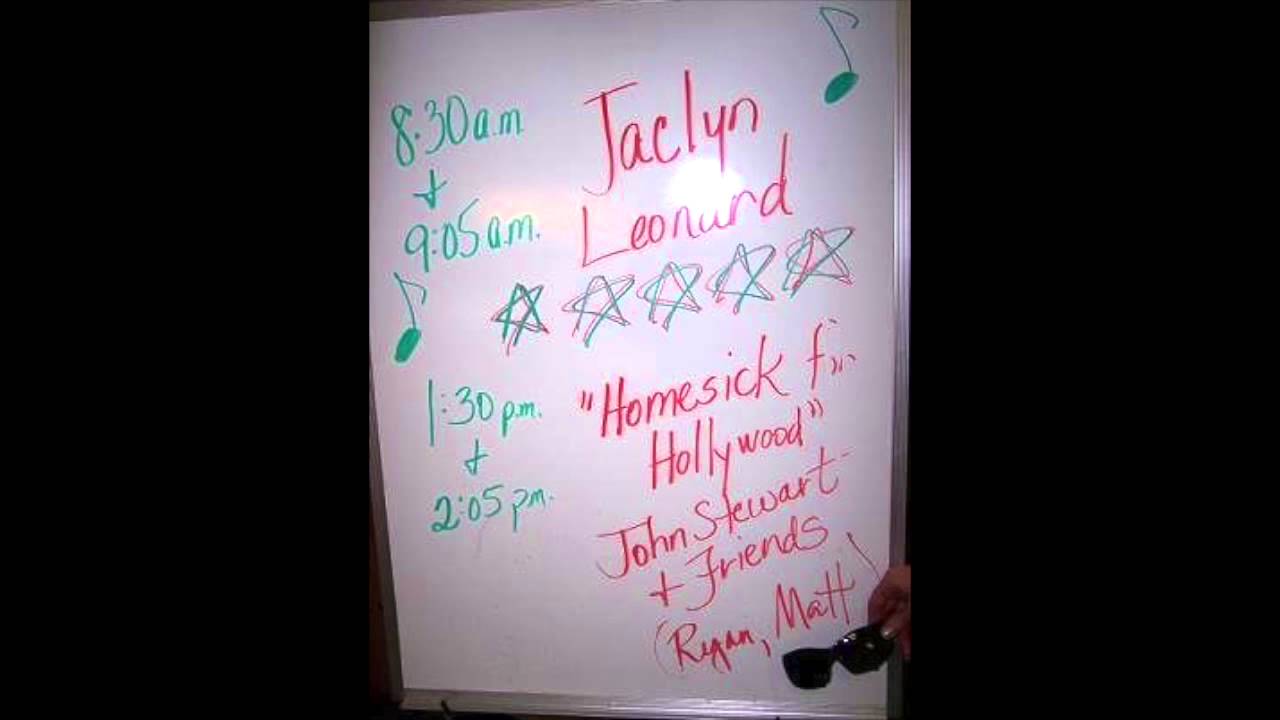 8:30 a.m.
+
9:05 a.m.
Jaclyn
Leonard
1:30 p.m.
+
2:05 p.m.
"Homesick f
Hollywood"
John Stewart
+ Friends
(Ryan, Matt)